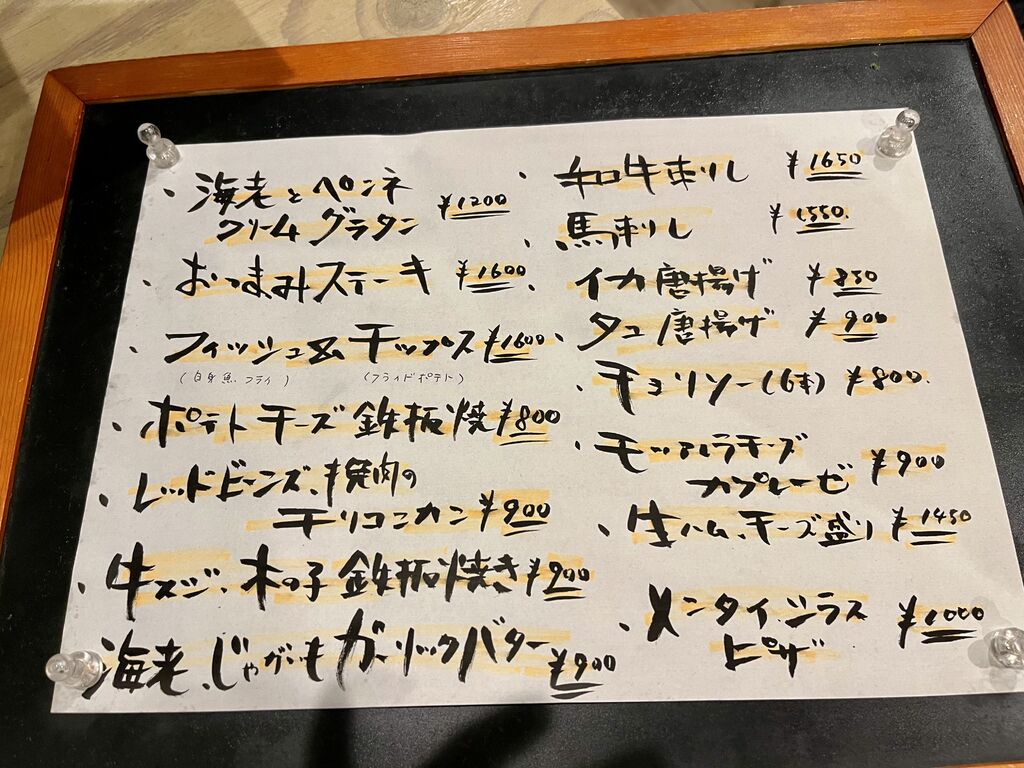 ・海老とペンネ
クリームグラタン ¥1200
・おつまみステーキ ¥1600
・フィッシュ&チップス ¥1600
(白身魚フライ) (フライドポテト)
・ポテトチーズ鉄板焼 ¥800
・レッドビーンズ、挽肉の
チリコンカン ¥900
・牛スジ、木の子鉄板焼き ¥900
海老、じゃがいもガーリックバター ¥900
・和牛刺し ¥1650
・馬刺し ¥1550.
・イカ唐揚げ ¥850
・タコ唐揚げ ¥900
・チョリソー(6本) ¥800.
・モッツァレラチーズ
カプレーゼ ¥900
・生ハム、チーズ盛り ¥1450
・メンタイ、シラス
ピザ ¥1000